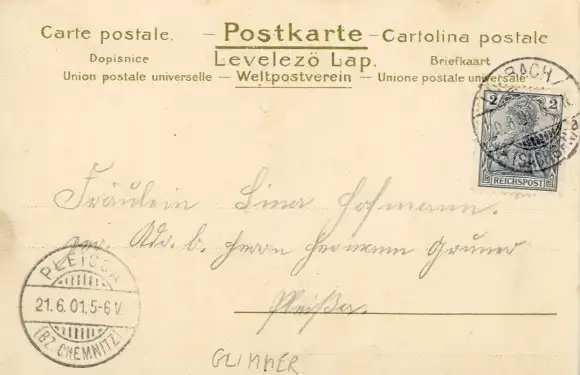 Carte postale. — Postkarte — Cartolina postale
Dopisnice Levelező Lap. Briefkaart
Union postale universelle — Weltpostverein — Unione postale universale
BACH
2 2
REICHSPOST
Fräulein Lina Hofmann.
Adr. b. Herrn Hermann Gruner
Pleißa.
PLEISSA
21.6.01.5-6V
(BZ. CHEMNITZ)
GLIMMER